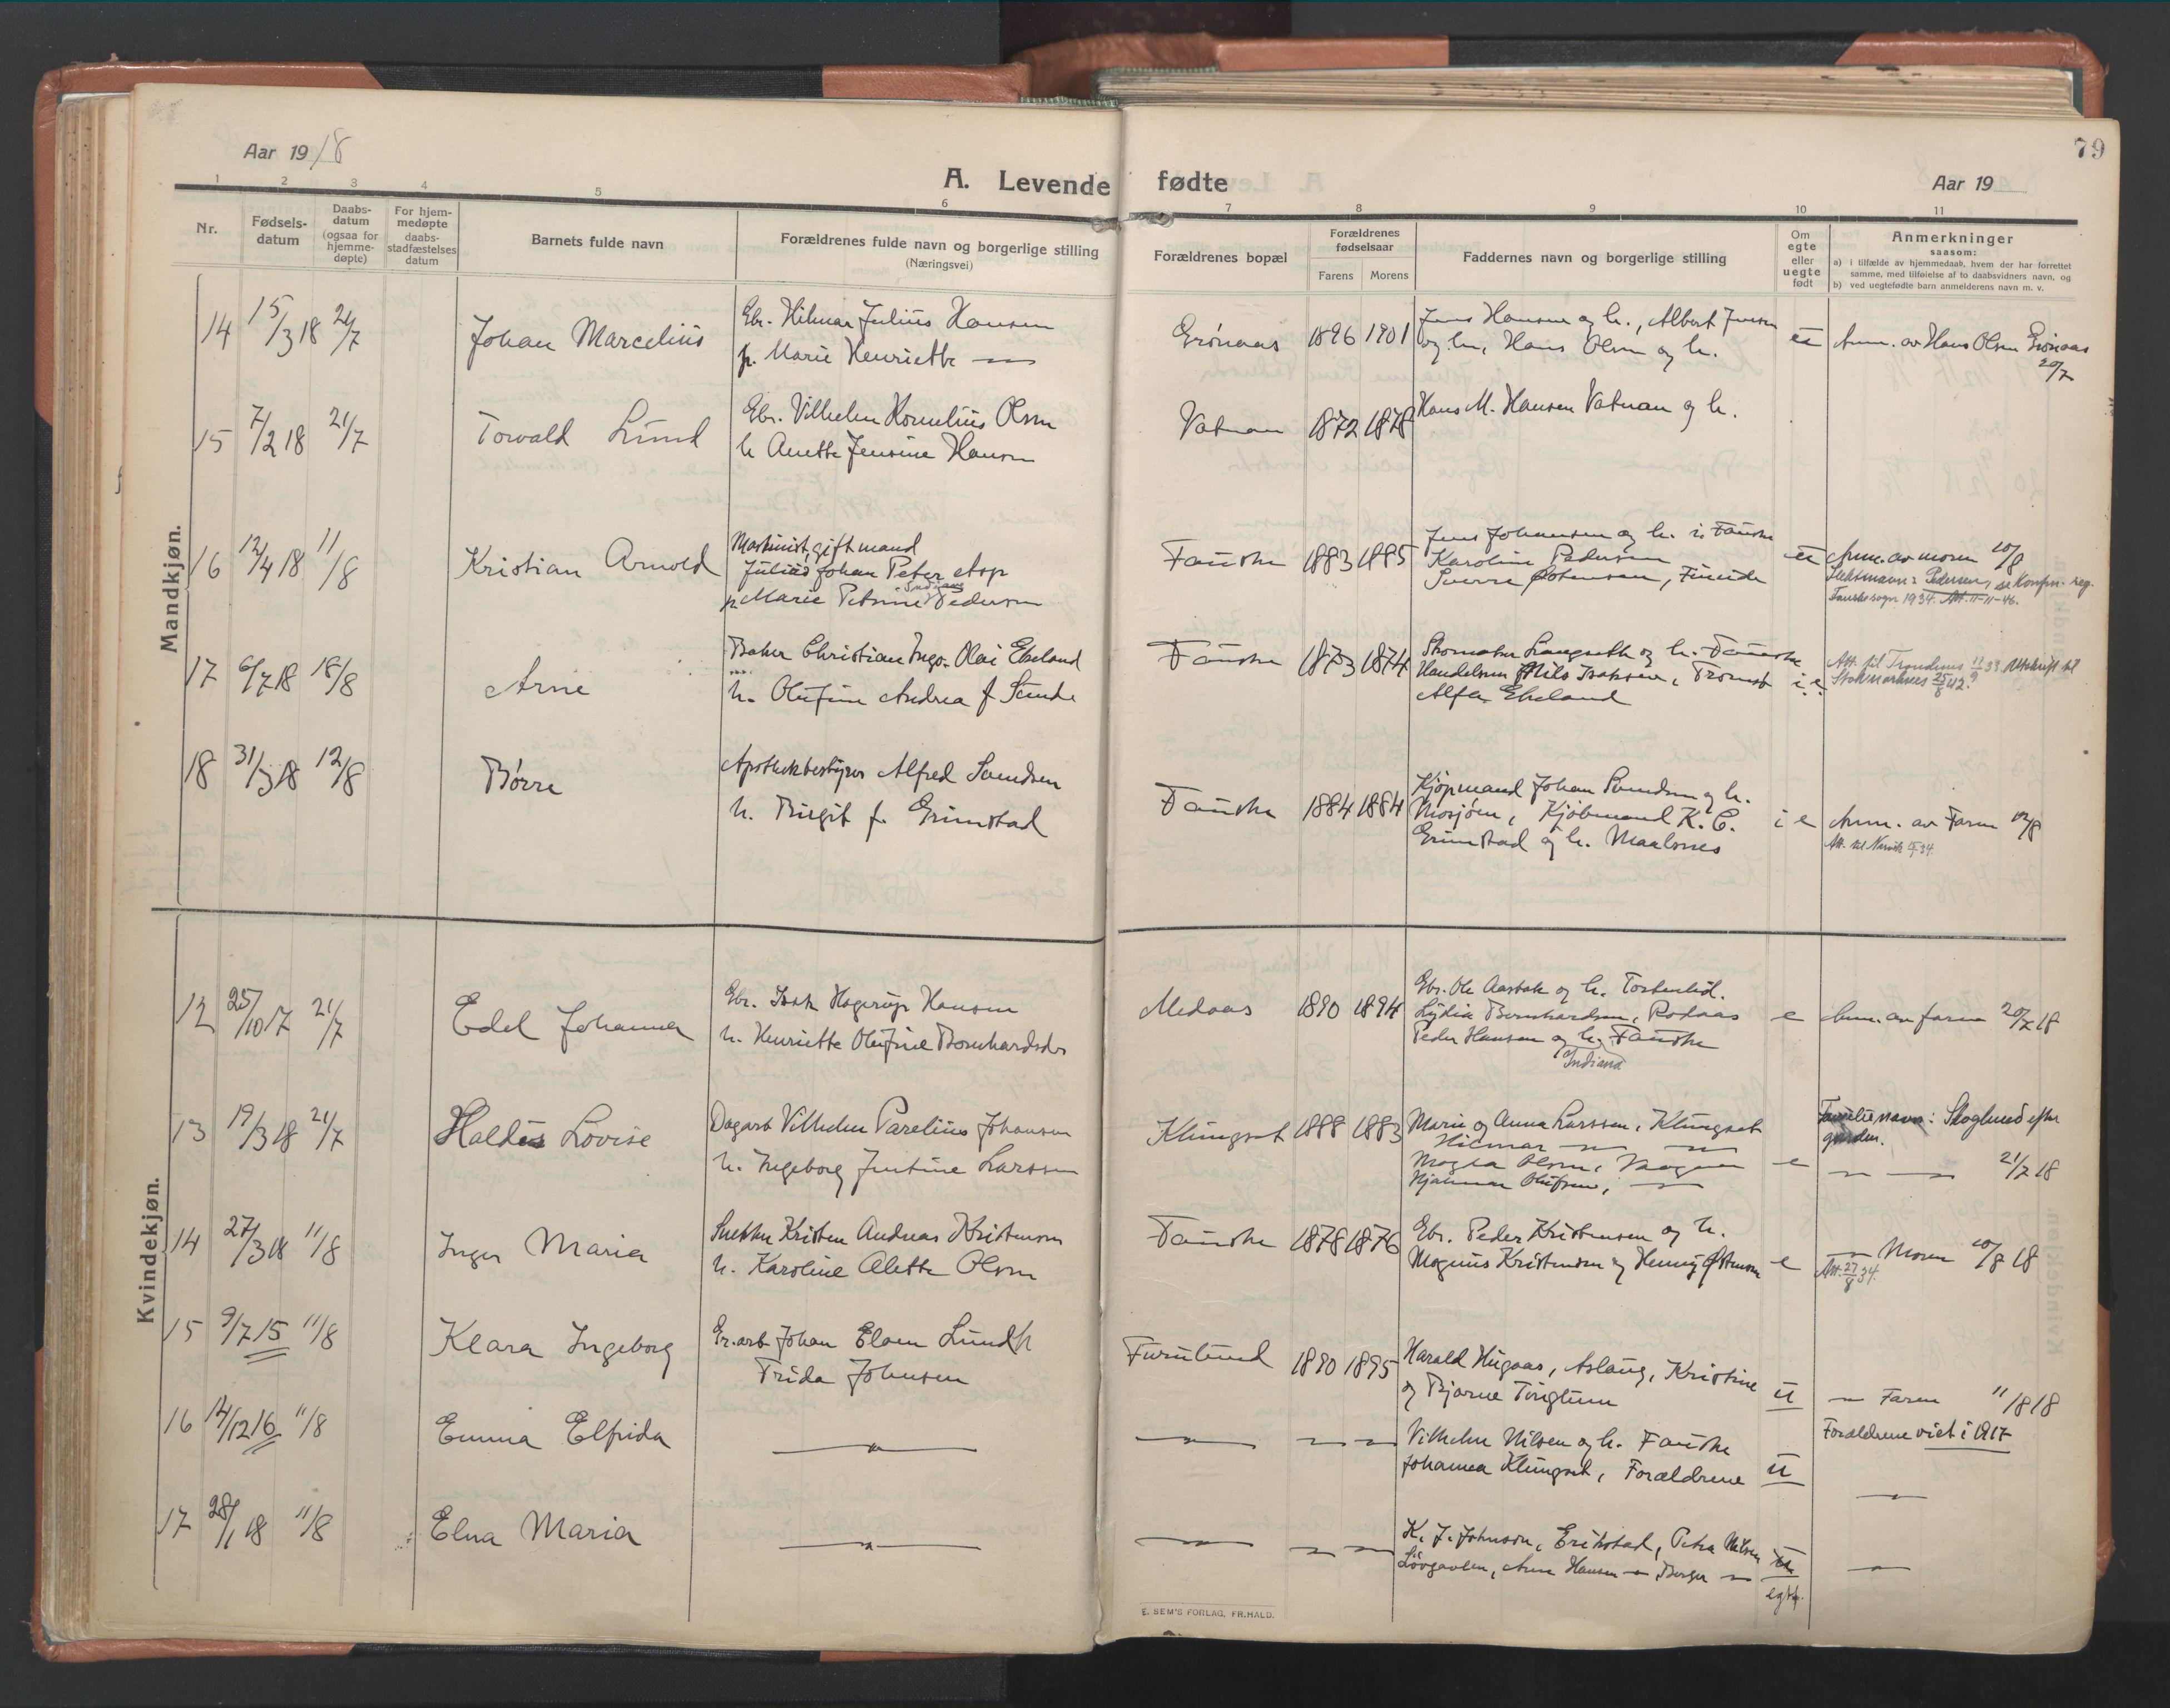 79
Aar 1918
A. Levende fødte
Aar 19
1 2 3 4 5 6 7 8 9 10 11
Nr.
Fødsels-
datum
Daabs-
datum
(ogsaa for
hjemme-
døpte)
For hjem-
medøpte
daabs-
stadfæstelses
datum
Barnets fulde navn
Forældrenes fulde navn og borgerlige stilling
(Næringsvei)
Forældrenes bopæl
Forældrenes
fødselsaar
Farens Morens
Faddernes navn og borgerlige stilling
Om
egte
eller
uegte
født
Anmerkninger
saasom:
a) i tilfælde av hjemmedaab, hvem der har forrettet
samme, med tilføielse af to daabsvidners navn, og
b) ved uegtefødte barn anmelderens navn m. v.
Mandkjøn.
14 15/3 18 21/7 Johan Marcelius
Gbr. Hilmar Julius Hansen
p. Marie Henriette —
Grønaas 1896 1901
Jens Hansen og h., Albert Jensen
og h., Hans Olsen og h.
ue
Anm. av Hans Olsen Grønaas
20/7
15 7/2 18 21/7 Torvald Lund
Gbr. Vilhelm Kornelius Olsen
h Anette Jensine Hansen
Vatnan 1872 1878
Hans M. Hansen Vatnan og h.
16 12/4 18 11/8 Kristian Arnold
Maskinist, gift mand
Julius Johan Peter Asp
p Marie Petrine Pedersen
Fauske 1883 1885
Jens Johansen og h. Fauske
Karoline Pedersen
Sverre Johansen, Fineide
ue
Anm. av moren 10/8
Slektsnavn: Pedersen, se konfm. reg.
Fauske sogn 1934. Att. 11-11-46.
17 6/7 18 18/8 Arne
Baker Christian Ingv. Olai Ekeland
h. Olufine Andrea f Sunde
Fauske 1873 1874
Skomaker Langseth og h. Fauske
Handelsm Nils Isaksen, Tromsø
Alfen Ekeland
i e
Att. til Trondenes 11/ 33. Utskrift til
Stokmarknes 25/8 42.
18 31/3 18 12/8 Børre
Apothekbestyrer Alfred Svendsen
h. Birgit f. Grimstad
Fauske 1884 1884
Kjøpmand Johan Svendsen og h.
Mosjøen, Kjøbmand K. C.
Grimstad og h. Maalsnes
i e
Anm. av Faren 12/8
Att. til Narvik 34.
Kvindekjøn.
12 25/10 17 21/7 Edel Johanna
Gbr. Isak Hagerup Hansen
h. Henriette Olufine Bernhardsdtr
Medaas 1890 1894
Gbr. Ole Aasbak og h. Tortenlid.
Lydia Bernhardsen, Rodaas
Peder Hansen og h. Fauske
Indiana
e
Anm. av faren 20/7 18
13 19/3 18 21/7 Haldis Lovise
Dagarb Vilhelm Parelius Johansen
h. Ingeborg Justine Larssen
Klungset 1888 1883
Marie og Anna Larssen, Klungset
Hilmar — —
Magda Olsen,
Hjalmar Olufsen, —
e
Familienavn: Skoglund efter
gården.
— — 21/7 18
14 27/3 18 11/8 Inger Maria
Snekker Kristen Andreas Kristensen
h. Karoline Alette Olsen
Fauske 1878 1876
Gbr. Peder Kristensen og h.
Magnus Kristensen og Henny Østensen
e
— Moren 10/8 18
Att. 27/8 34.
15 9/7 15 11/8 Klara Ingeborg
Gr.arb Johan Elven Lund h
Frida Johnsen
Furulund 1890 1895
Harald Hugaas, Aslaug, Kristine
og Bjarne Tinglum
u
— Faren 11/8 18
Forældrene viet i 1917
16 14/12 16 11/8 Emma Elfrida
— " —
— — —
Vilhelm Nilsen og h. Fauske
Johanna Klungset, Forældrene
u
—
17 28/1 18 11/8 Elna Maria
— " —
— — —
K. J. Johnson, Erikstad, Petra Nilsen
Løvgavlen, Arne Hansen — Borger —
egte.
—
E. SEM'S FORLAG, FR.HALD.